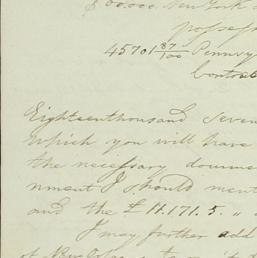 $00.000 New York
possess
45701 87/100 Pennsy
Contra
Eighteenthousand Seven
which you will have
the necessary docume
nment I should ment
and the £11.171.5. "
I may further add
of